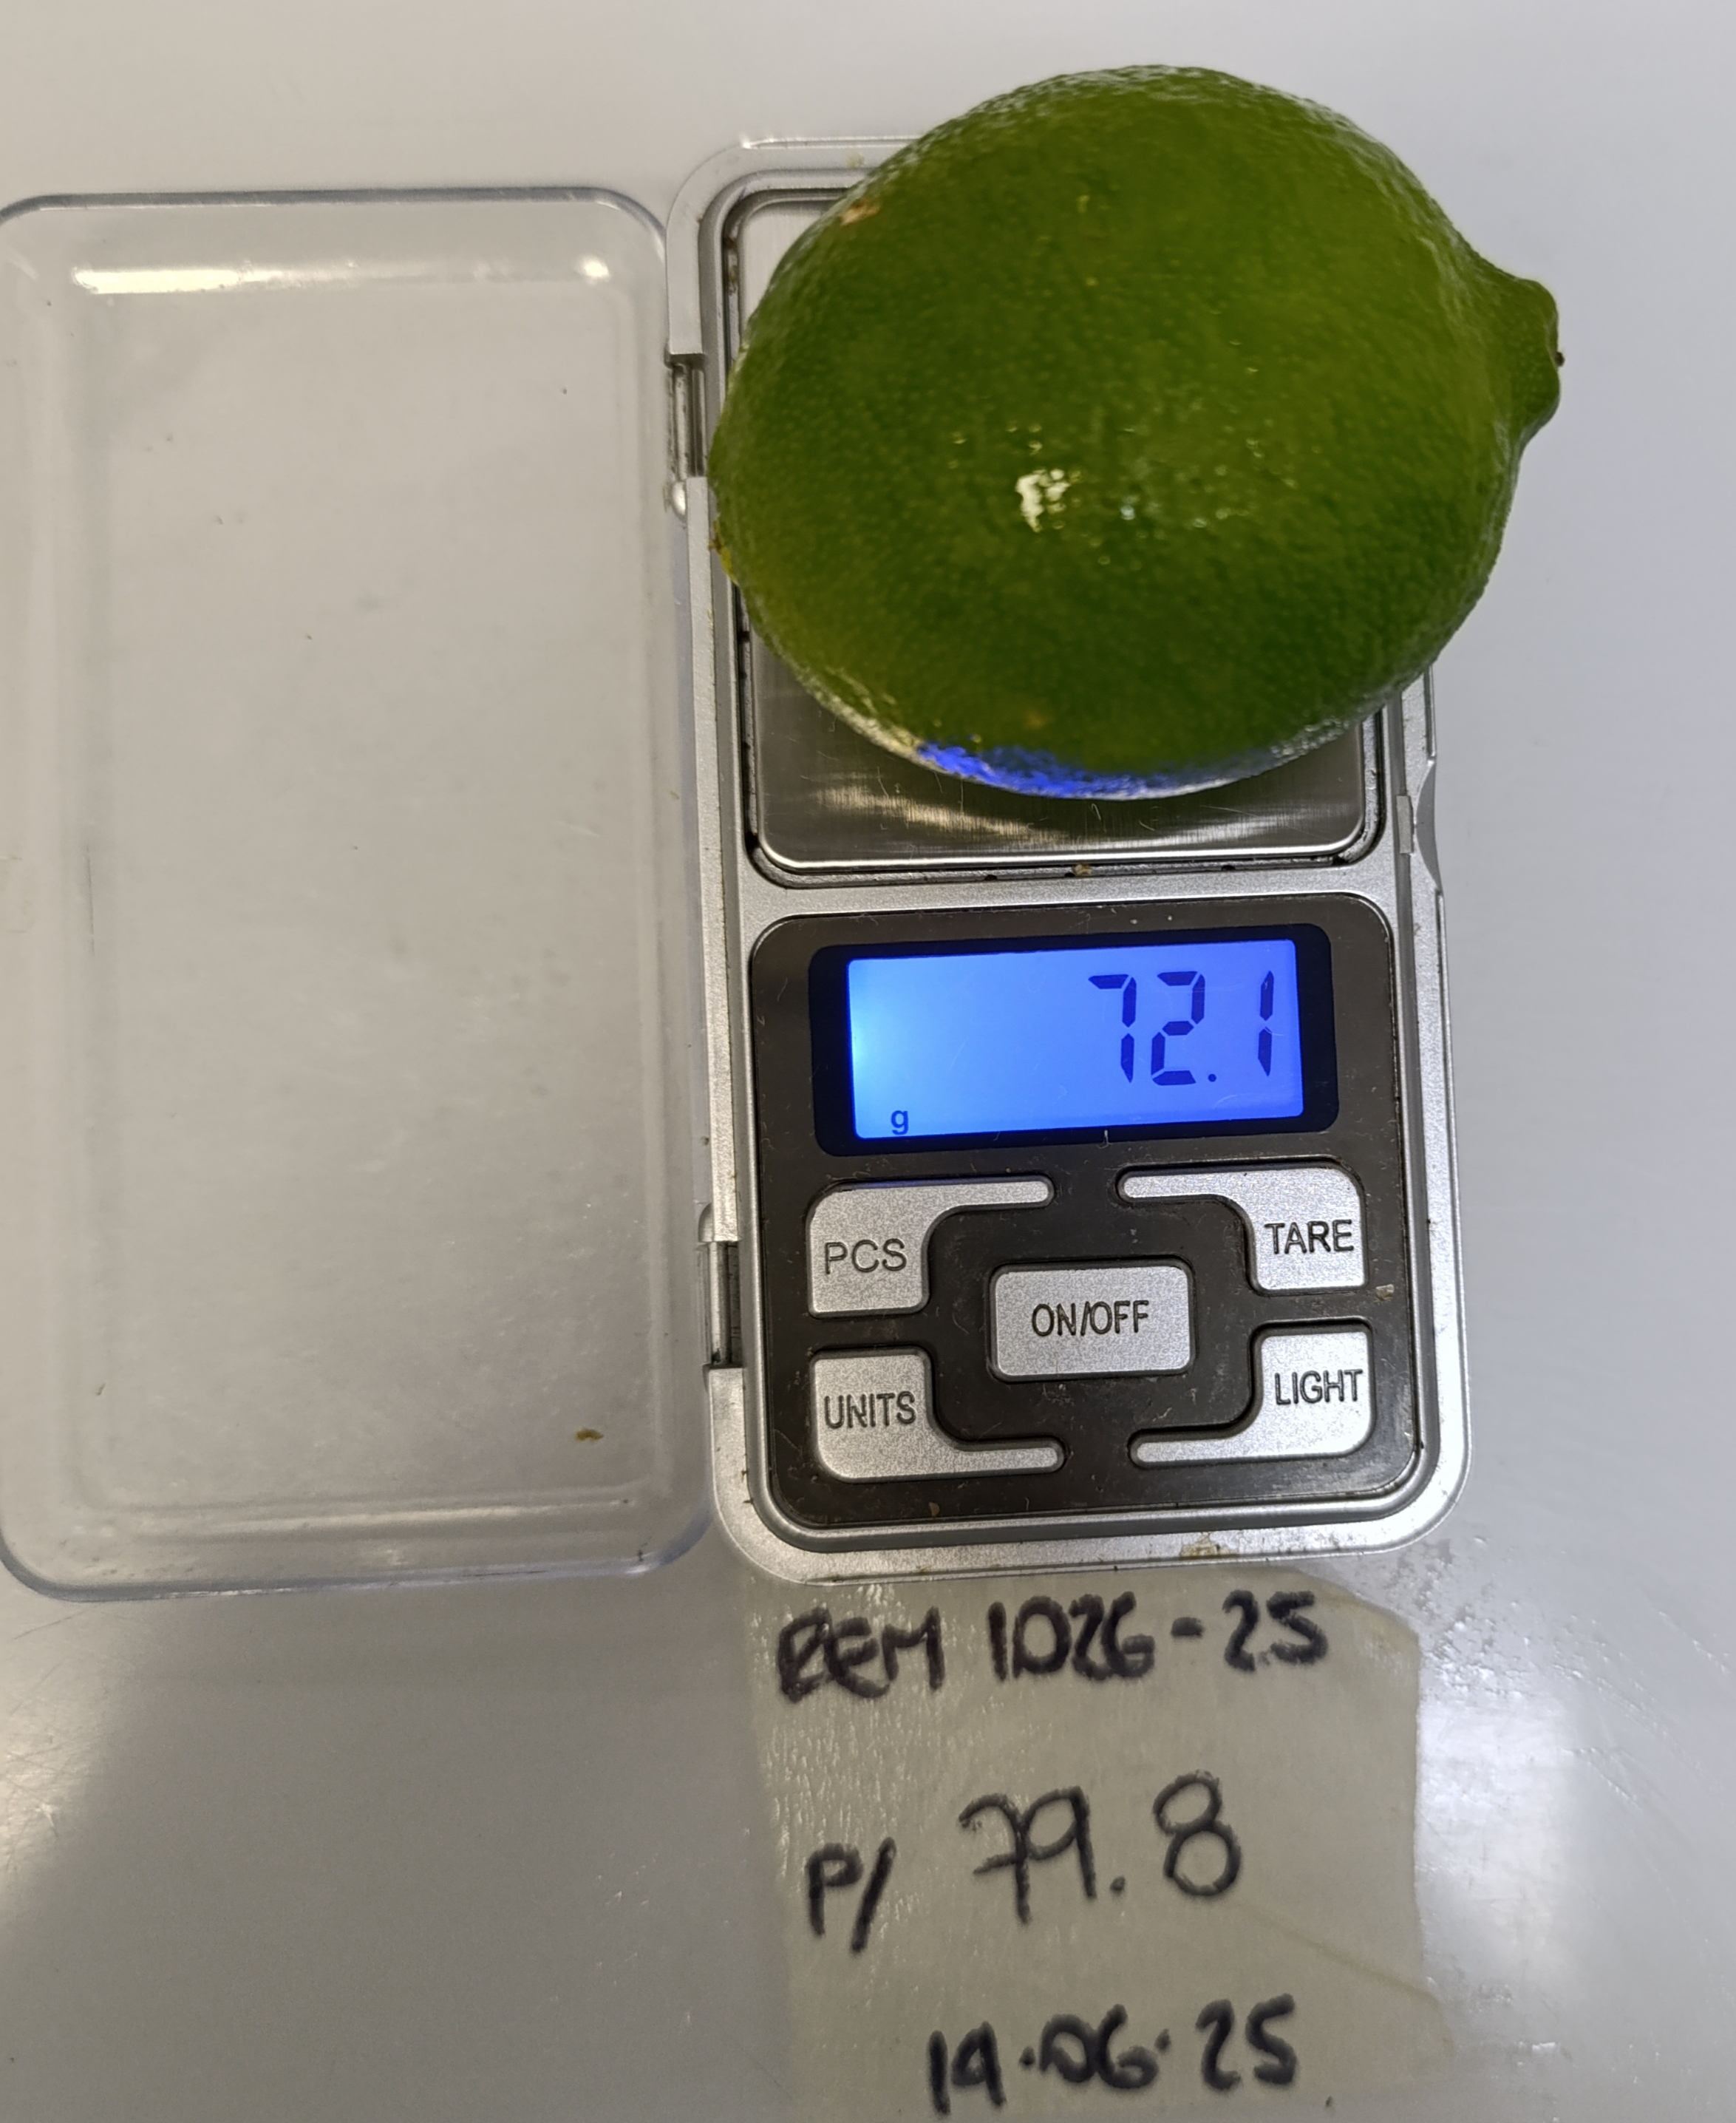 72.1
g
PCS
TARE
ON/OFF
UNITS
LIGHT
REM 1026-25
P/ 79.8
19.06.25